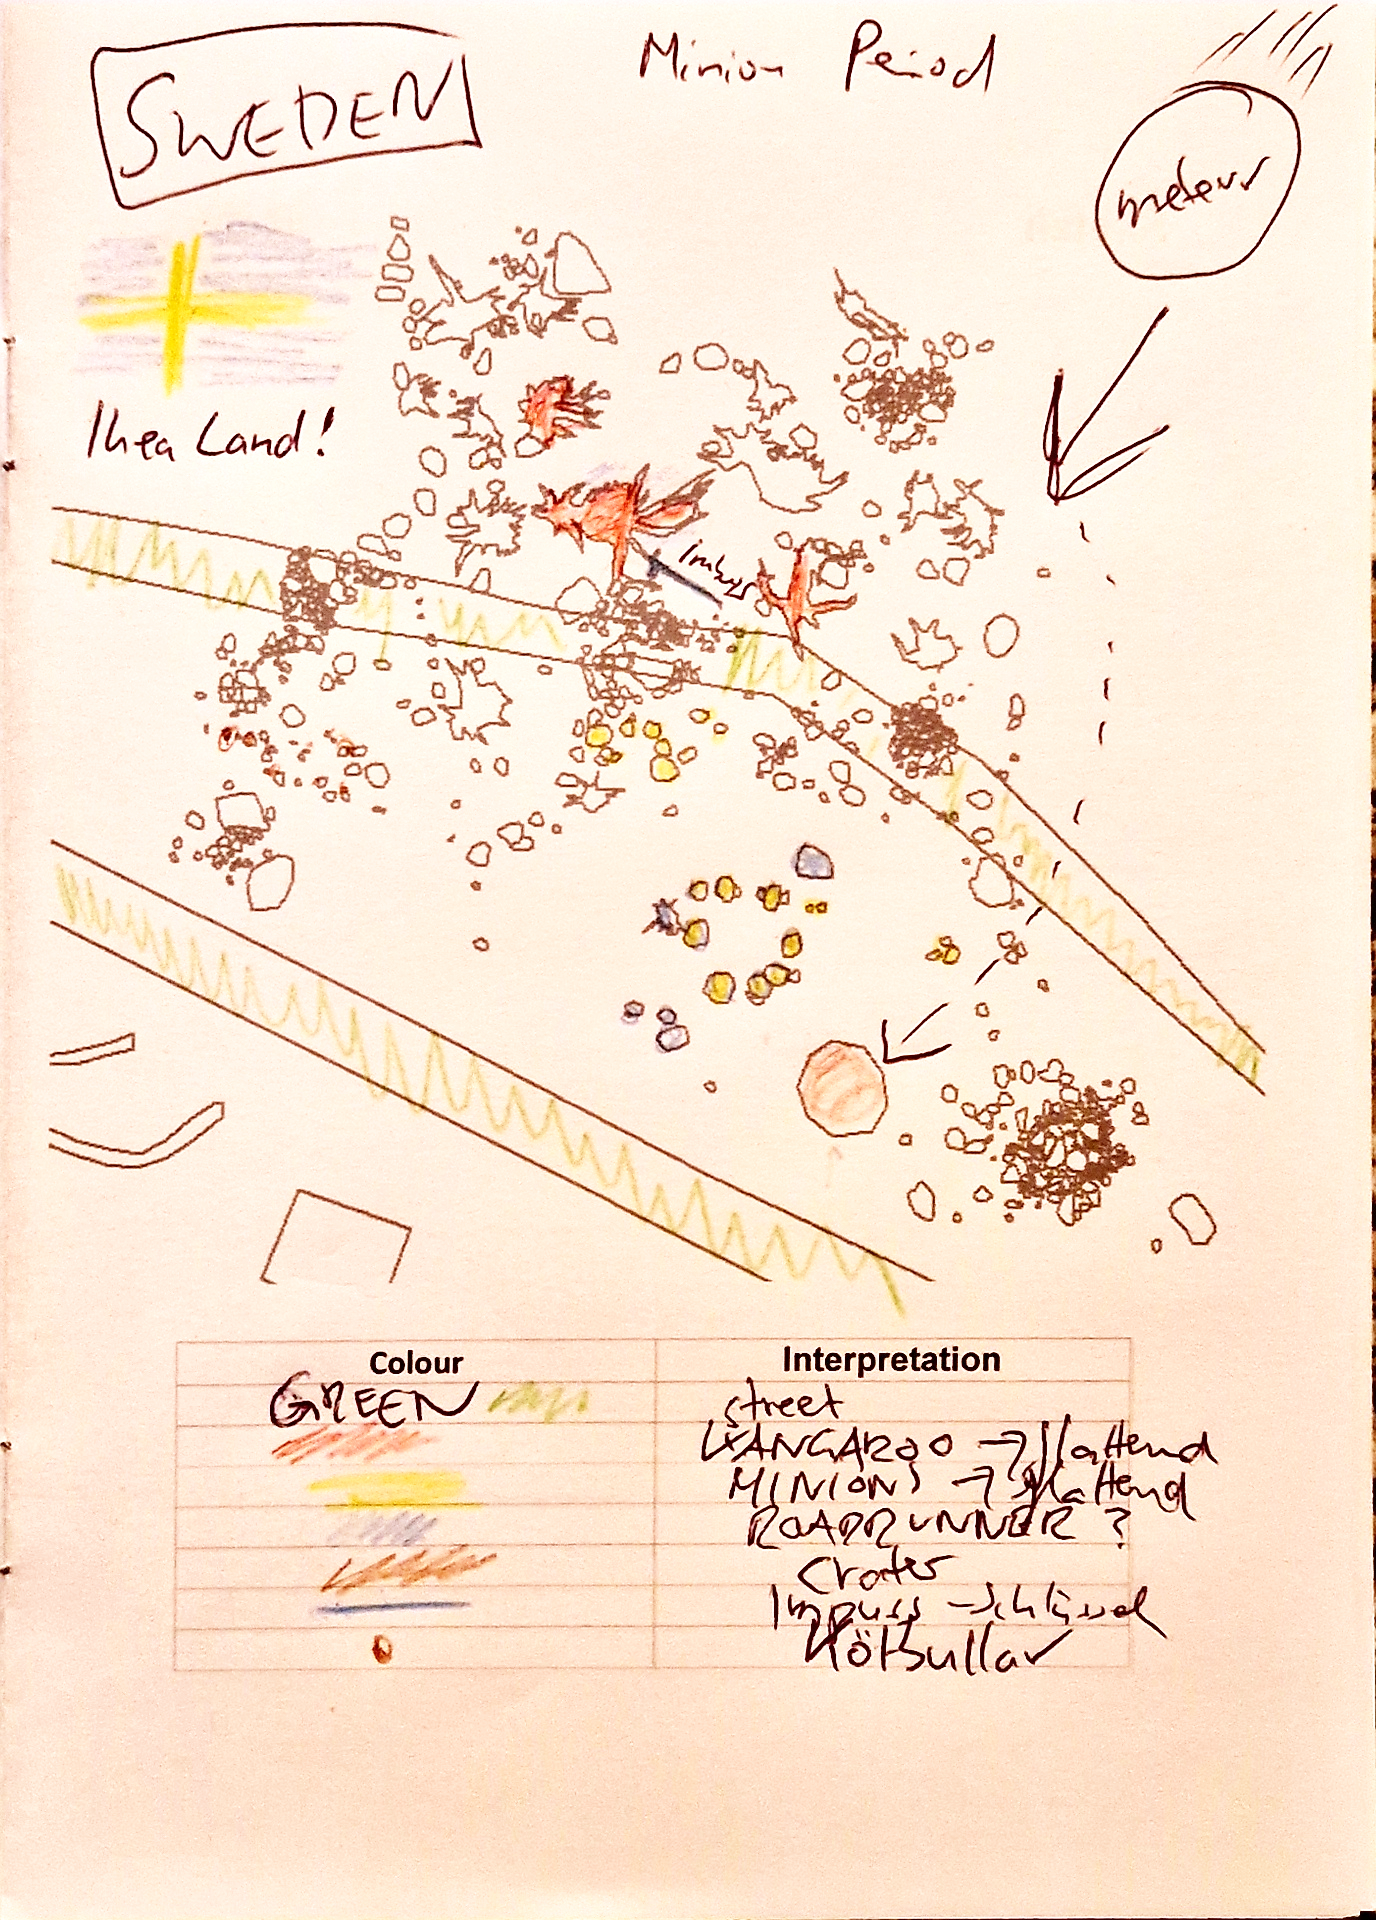 SWEDEN
Minion Period
meteor
Ikea Land!
imbus
Colour Interpretation
GREEN street
KANGAROO → flattend
MINIONS → flattend
ROADRUNNER ?
Crater
Impuss-schlüssel
Kötbullar